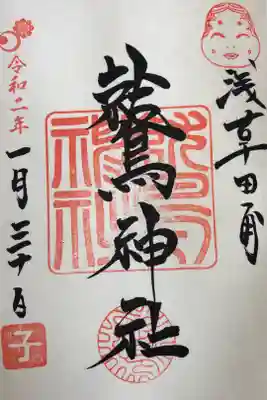 浅草田甫
鷲神社
令和二年
一月三十日
子